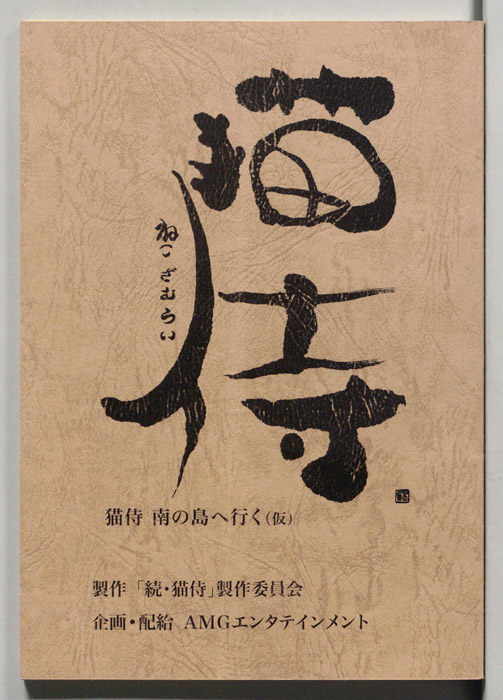 猫侍
ねこざむらい
猫侍 南の島へ行く(仮)
製作 「続・猫侍」製作委員会
企画・配給 AMGエンタテインメント